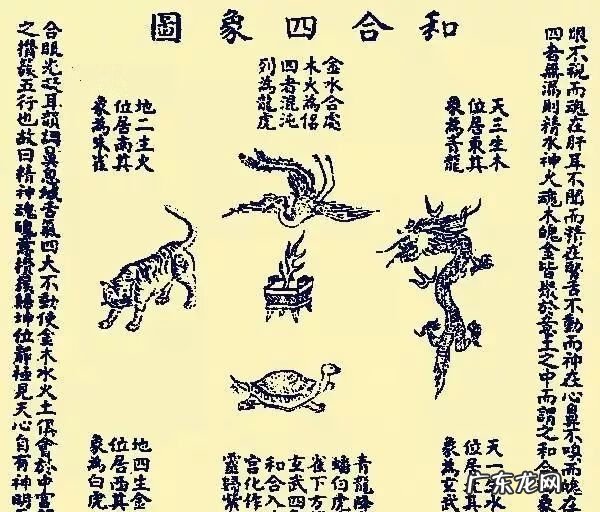 和合四象圖
眼不視而魂在肝耳不聞而精在腎舌不動而神在心鼻不嗅而魄在
四者無漏則精水神火魂木魄金皆聚於意土之中而謂之和合四象
天三生木
位居東其
象為青龍
金水合處
木火為侶
四者混沌
列為龍虎
地二生火
位居南其
象為朱雀
天一生水
位居
象為玄武
青龍降
蟠白虎
雀下方
玄武四
和合入
宮化作
靈歸紫
地四生金
位居西其
象為白虎
合眼光凝耳韻調鼻息緘舌氣四大不動使金木水火土俱會於中宮
之攢簇五行也故曰精神魂魄意攢簇歸坤位靜極見天心自有神明
广东龙网